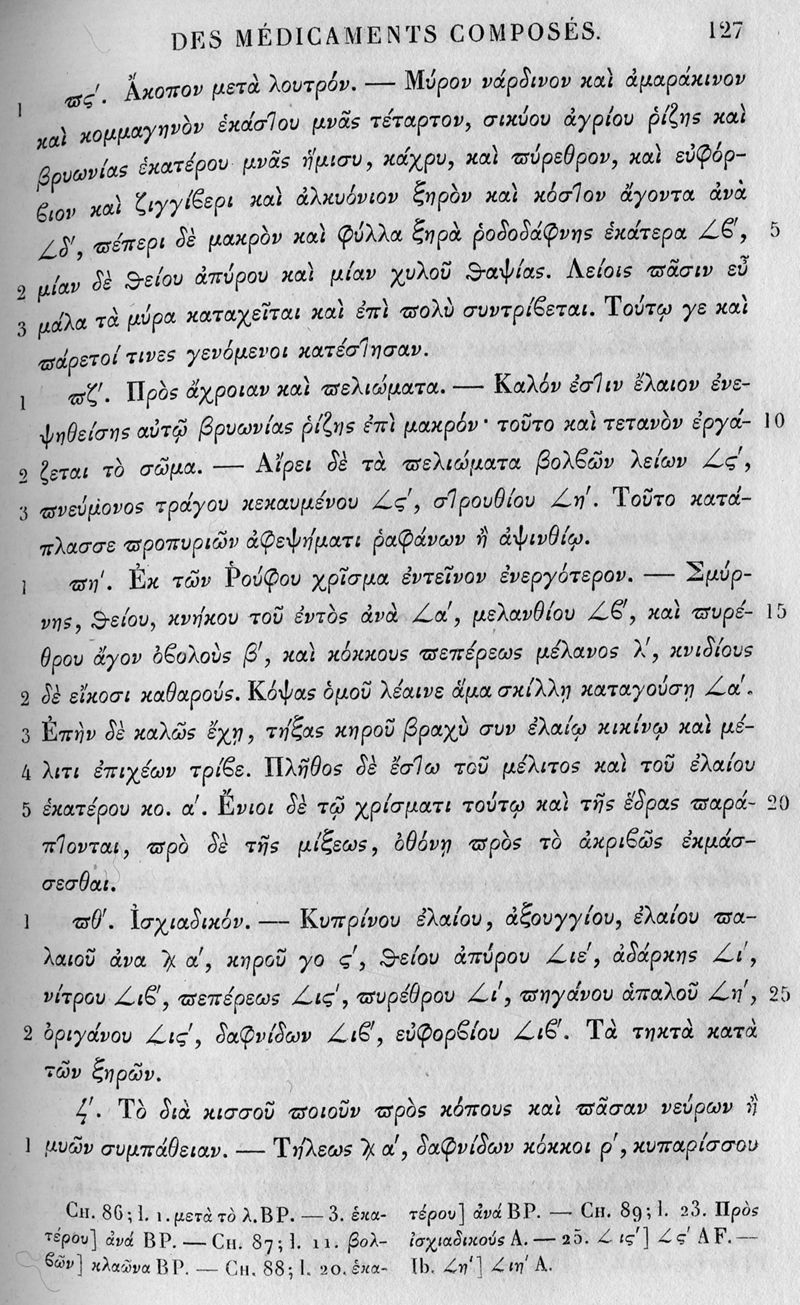 DES MÉDICAMENTS COMPOSÉS. 127
1 πϛ′. Ἄκοπον μετὰ λουτρόν. — Μύρον νάρδινον καὶ ἀμαράκινον
καὶ κομμαγηνὸν ἑκάστου μνᾶς τέταρτον, σικύου ἀγρίου ῥίζης καὶ
βρυωνίας ἑκατέρου μνᾶς ἥμισυ, κάχρυ, καὶ πύρεθρον, καὶ εὐφόρ-
βιον καὶ ζιγγίβερι καὶ ἀλκυόνιον ξηρὸν καὶ κόστον ἄγοντα ἀνὰ
∠δ′, πέπερι δὲ μακρὸν καὶ φύλλα ξηρὰ ῥοδοδάφνης ἑκάτερα ∠β′, 5
2 μίαν δὲ θείου ἀπύρου καὶ μίαν χυλοῦ θαψίας. Λείοις πᾶσιν εὖ
3 μάλα τὰ μύρα καταχεῖται καὶ ἐπὶ πολὺ συντρίβεται. Τούτῳ γε καὶ
πάρετοί τινες γενόμενοι κατέστησαν.
1 πζ′. Πρὸς ἄχροιαν καὶ πελιώματα. — Καλόν ἐστιν ἔλαιον ἐνε-
ψηθείσης αὐτῷ βρυωνίας ῥίζης ἐπὶ μακρόν· τοῦτο καὶ τετανὸν ἐργά- 10
2 ζεται τὸ σῶμα. — Αἴρει δὲ τὰ πελιώματα βολβῶν λείων ∠ϛ′,
3 πνεύμονος τράγου κεκαυμένου ∠ϛ′, στρουθίου ∠η′. Τοῦτο κατά-
πλασσε προπυριῶν ἀφεψήματι ῥαφάνων ἢ ἀψινθίῳ.
1 πη′. Ἐκ τῶν Ῥούφου χρῖσμα ἐντεῖνον ἐνεργότερον. — Σμύρ-
νης, θείου, κνήκου τοῦ ἐντὸς ἀνὰ ∠α′, μελανθίου ∠β′, καὶ πυρέ- 15
θρου ἄγον ὀβολοὺς β′, καὶ κόκκους πεπέρεως μέλανος λ′, κνιδίους
2 δὲ εἴκοσι καθαρούς. Κόψας ὁμοῦ λέαινε ἅμα σκίλλῃ καταγούσῃ ∠α′.
3 Ἐπὴν δὲ καλῶς ἔχῃ, τήξας κηροῦ βραχὺ συν ἐλαίῳ κικίνῳ καὶ μέ-
4 λιτι ἐπιχέων τρίβε. Πλῆθος δὲ ἔστω τοῦ μέλιτος καὶ τοῦ ἐλαίου
5 ἑκατέρου κο. α′. Ἔνιοι δὲ τῷ χρίσματι τούτῳ καὶ τῆς ἕδρας παρά- 20
πτονται, πρὸ δὲ τῆς μίξεως, ὀθόνῃ πρὸς τὸ ἀκριβῶς ἐκμάσ-
σεσθαι.
1 πθ′. Ἰσχιαδικόν. — Κυπρίνου ἐλαίου, ἀξουγγίου, ἐλαίου πα-
λαιοῦ ἀνα ⁒ α′, κηροῦ γο ϛ′, θείου ἀπύρου ∠ιε′, ἀδάρκης ∠ι′,
νίτρου ∠ιβ′, πεπέρεως ∠ιϛ′, πυρέθρου ∠ι′, πηγάνου ἁπαλοῦ ∠η′, 25
2 ὀριγάνου ∠ιϛ′, δαφνίδων ∠ιβ′, εὐφορβίου ∠ιβ′. Τὰ τηκτὰ κατὰ
τῶν ξηρῶν.
ϟ′. Τὸ διὰ κισσοῦ ποιοῦν πρὸς κόπους καὶ πᾶσαν νεύρων ἢ
1 μυῶν συμπάθειαν. — Τήλεως ⁒ α′, δαφνίδων κόκκοι ρ′, κυπαρίσσου
Ch. 86; l. 1. μετὰ τὸ λ. BP. — 3. ἑκα-
τέρου] ἀνά BP. — Ch. 87; l. 11. βολ-
βῶν] κλαῶνα BP. — Ch. 88; l. 20. ἑκα-
τέρου] ἀνά BP. — Ch. 89; l. 23. Πρὸς
ἰσχιαδικούς A. — 25. ∠ ιϛ′] ∠ϛ′ AF. —
Ib. ∠η′] ∠ιη′ A.